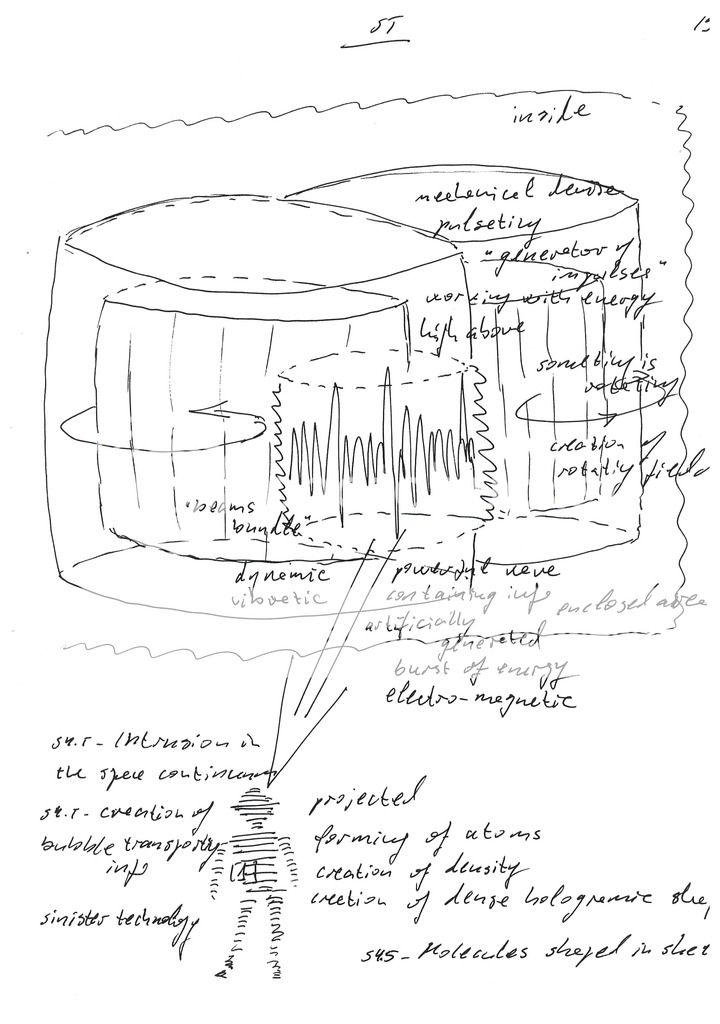 ST
13
inside
mechanical dense
pulseting
"generator of
impulses"
working with energy
high above
something is
rotating
creation of
rotating field
"beams
bundle"
dynamic
vibretic
powerful wave
containing info
enclosed area
artificially
generated
burst of energy
electro-magnetic
S4.r - Intrusion in
the spece continuum
projected
S4.r - creation of
forming of atoms
bubble transporting
info
creation of density
creetion of dense hologremic
sinister technology
S4.5 - Molecules sheped in